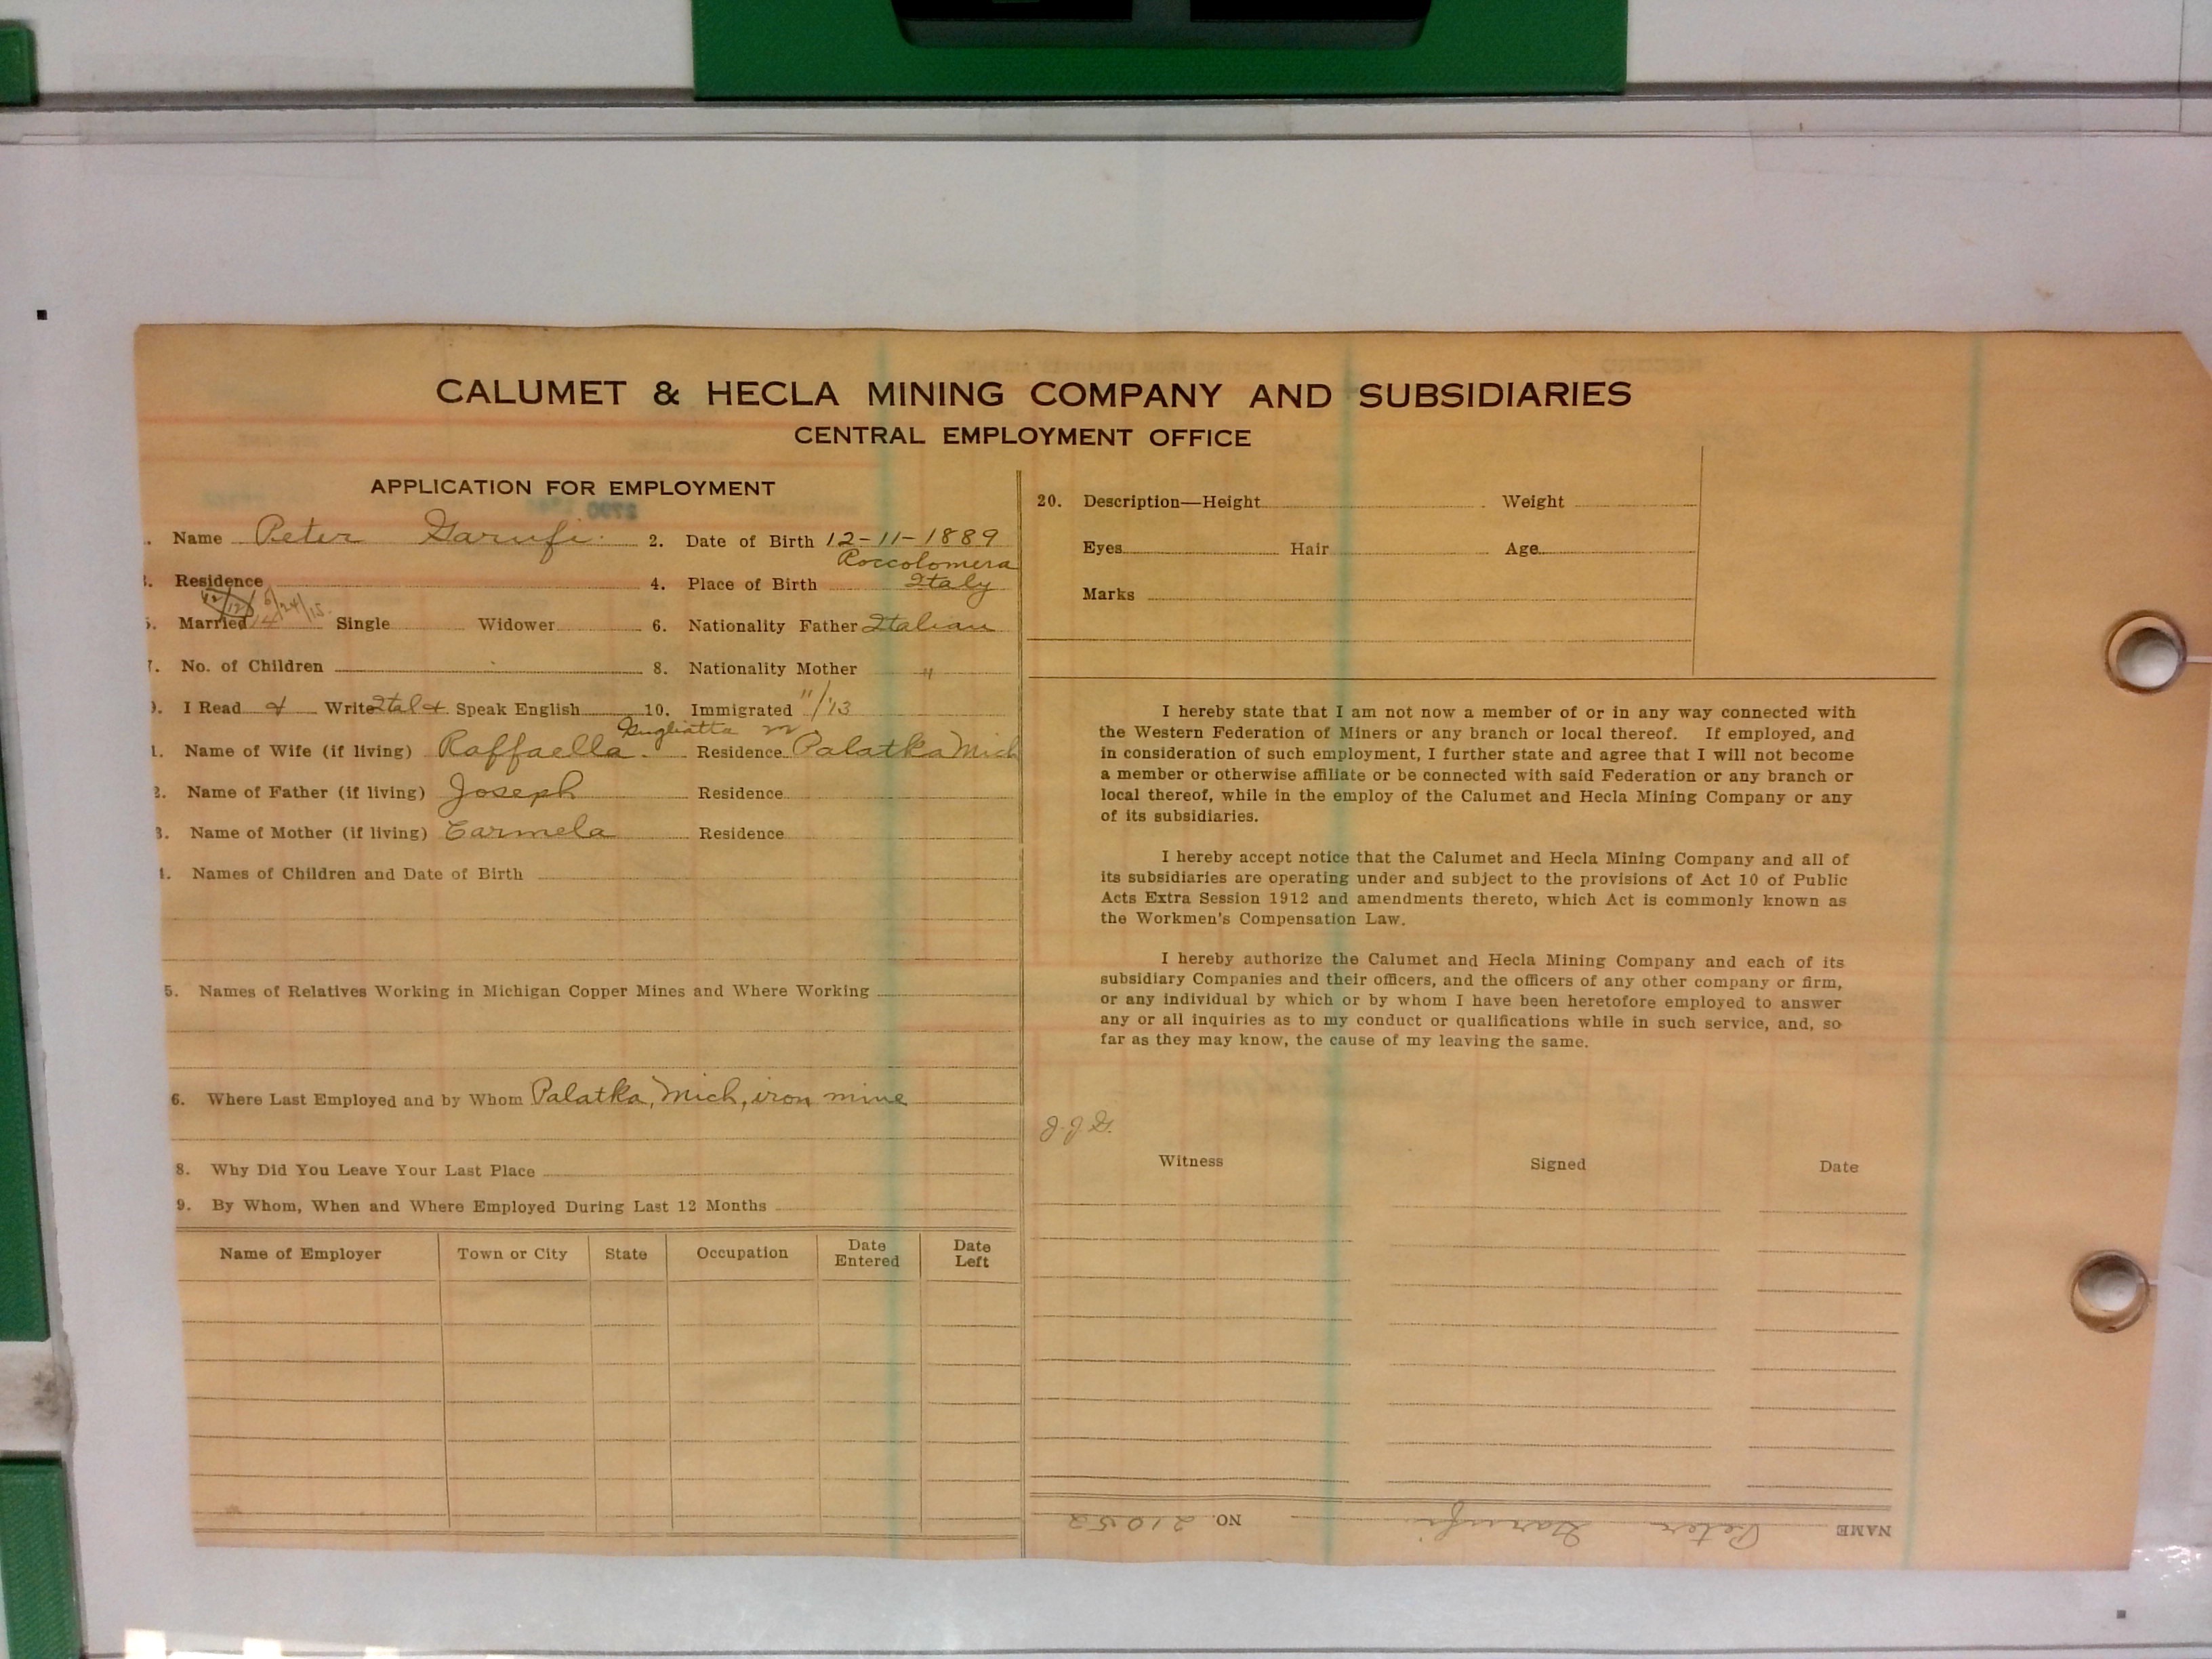 CALUMET & HECLA MINING COMPANY AND SUBSIDIARIES
CENTRAL EMPLOYMENT OFFICE
APPLICATION FOR EMPLOYMENT
Name Peter Garufi
2. Date of Birth 12-11-1889
Residence
4. Place of Birth Roccolomera
Italy
6/24/15
Married Single Widower
6. Nationality Father Italian
7. No. of Children
8. Nationality Mother "
9. I Read & Write Ital & Speak English
10. Immigrated 11/13
1. Name of Wife (if living) Raffaella Residence Palatka Mich
2. Name of Father (if living) Joseph Residence
3. Name of Mother (if living) Carmela Residence
4. Names of Children and Date of Birth
5. Names of Relatives Working in Michigan Copper Mines and Where Working
6. Where Last Employed and by Whom Palatka, Mich, iron mine
8. Why Did You Leave Your Last Place
9. By Whom, When and Where Employed During Last 12 Months
Name of Employer Town or City State Occupation Date Entered Date Left
20. Description—Height Weight
Eyes Hair Age
Marks
I hereby state that I am not now a member of or in any way connected with
the Western Federation of Miners or any branch or local thereof. If employed, and
in consideration of such employment, I further state and agree that I will not become
a member or otherwise affiliate or be connected with said Federation or any branch or
local thereof, while in the employ of the Calumet and Hecla Mining Company or any
of its subsidiaries.
I hereby accept notice that the Calumet and Hecla Mining Company and all of
its subsidiaries are operating under and subject to the provisions of Act 10 of Public
Acts Extra Session 1912 and amendments thereto, which Act is commonly known as
the Workmen's Compensation Law.
I hereby authorize the Calumet and Hecla Mining Company and each of its
subsidiary Companies and their officers, and the officers of any other company or firm,
or any individual by which or by whom I have been heretofore employed to answer
any or all inquiries as to my conduct or qualifications while in such service, and, so
far as they may know, the cause of my leaving the same.
J.J.G.
Witness Signed Date
NAME Peter Garufi NO. 21052